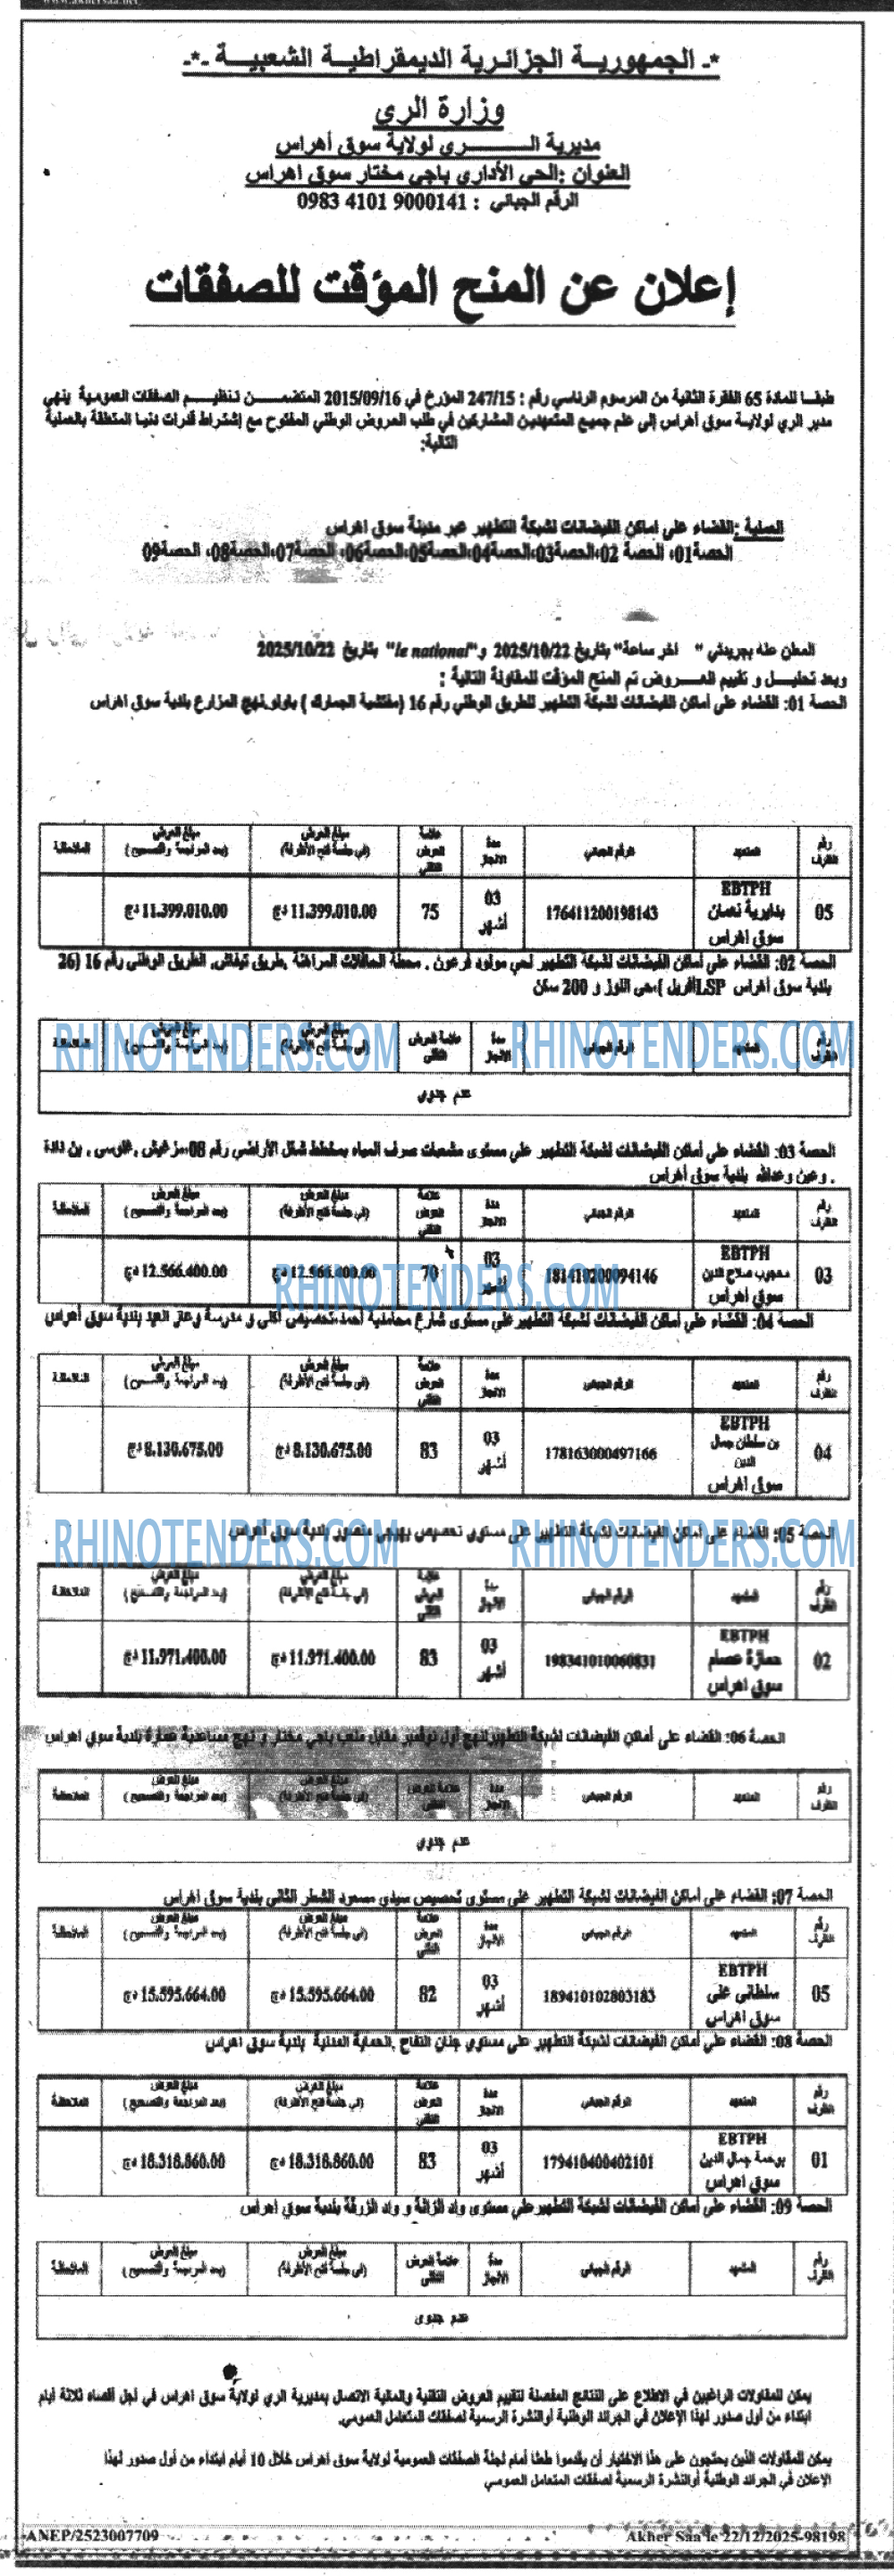 www.akhersaa.net
*- الجمهورية الجزائرية الديمقراطية الشعبية -*-
وزارة الري
مديرية الــري لولاية سوق أهراس
العنوان :الحي الأداري باجي مختار سوق اهراس
الرقم الجبائي : 0983 4101 9000141
إعلان عن المنح المؤقت للصفقات
طبقا للمادة 65 الفقرة الثانية من المرسوم الرئاسي رقم : 247/15 المؤرخ في 2015/09/16 المتضمن تنظيم الصفقات العمومية ينهي
مدير الري لولاية سوق أهراس إلى علم جميع المتعهدين المشاركين في طلب العروض الوطني المفتوح مع إشتراط قدرات دنيا المتعلقة بالعملية
التالية:
العملية :القضاء على اماكن الفيضانات لشبكة التطهير عبر مدينة سوق اهراس
الحصة01، الحصة 02،الحصة03،الحصة04،الحصة05،الحصة06، الحصة07،الحصة08، الحصة09
المعلن عنه بجريدتي " اخر ساعة" بتاريخ 2025/10/22 و"le national" بتاريخ 2025/10/22
وبعد تحليل و تقييم العروض تم المنح المؤقت للمقاولة التالية :
الحصة 01: القضاء على أماكن الفيضانات لشبكة التطهير للطريق الوطني رقم 16 (مفتشية الجمارك ) باولو,نهج المزارع بلدية سوق اهراس
رقم الظرف | المتعهد | الرقم الجبائي | مدة الانجاز | علامة العرض التقني | مبلغ العرض (في جلسة فتح الأظرفة) | مبلغ العرض (بعد المراجعة والتصحيح ) | الملاحظة
05 | EBTPH بنايرية نعمان سوق اهراس | 176411200198143 | 03 أشهر | 75 | 11.399.010.00 دج | 11.399.010.00 دج
الحصة 02: القضاء على أماكن الفيضانات لشبكة التطهير لحي مولود فرعون , محطة الحافلات المراهنة ,طريق تيفاش, الطريق الوطني رقم 16 (26
أفريل )،حي اللوز و 200 سكن LSP بلدية سوق أهراس
رقم الظرف | المتعهد | الرقم الجبائي | مدة الانجاز | علامة العرض التقني | مبلغ العرض (في جلسة فتح الأظرفة) | مبلغ العرض (بعد المراجعة والتصحيح ) | الملاحظة
عدم جدوى
RHINOTENDERS.COM RHINOTENDERS.COM
الحصة 03: القضاء على أماكن الفيضانات لشبكة التطهير على مستوى مشعبات صرف المياه بمخطط شغل الأراضي رقم 08،مزغيش , بن دادة
, وعين وعدالله بلدية سوق أهراس
رقم الظرف | المتعهد | الرقم الجبائي | مدة الانجاز | علامة العرض التقني | مبلغ العرض (في جلسة فتح الأظرفة) | مبلغ العرض (بعد المراجعة والتصحيح ) | الملاحظة
03 | EBTPH محجوب صلاح الدين سوق اهراس | 181410200094146 | 03 أشهر | 70 | 12.566.400.00 دج | 12.566.400.00 دج
RHINOTENDERS.COM
الحصة 04: القضاء على أماكن الفيضانات لشبكة التطهير على مستوى شارع محامدية أحمد،تحصيص أكلي و مدرسة وعار العيد بلدية سوق أهراس
رقم الظرف | المتعهد | الرقم الجبائي | مدة الانجاز | علامة العرض التقني | مبلغ العرض (في جلسة فتح الأظرفة) | مبلغ العرض (بعد المراجعة والتصحيح ) | الملاحظة
04 | EBTPH بن سلطان جمال الدين سوق اهراس | 178163000497166 | 03 أشهر | 83 | 8.130.675.00 دج | 8.130.675.00 دج
الحصة 05: القضاء على أماكن الفيضانات لشبكة التطهير على مستوى تحصيص بهيجي منصور بلدية سوق أهراس
RHINOTENDERS.COM RHINOTENDERS.COM
رقم الظرف | المتعهد | الرقم الجبائي | مدة الانجاز | علامة العرض التقني | مبلغ العرض (في جلسة فتح الأظرفة) | مبلغ العرض (بعد المراجعة والتصحيح ) | الملاحظة
02 | EBTPH حمازة عصام سوق اهراس | 198341010060831 | 03 أشهر | 83 | 11.971.400.00 دج | 11.971.400.00 دج
الحصة 06: القضاء على أماكن الفيضانات لشبكة التطهيرلنهج أول نوفمبر مقابل ملعب باجي مختار و نهج مساعدية عمارة بلدية سوق اهراس
رقم الظرف | المتعهد | الرقم الجبائي | مدة الانجاز | علامة العرض التقني | مبلغ العرض (في جلسة فتح الأظرفة) | مبلغ العرض (بعد المراجعة والتصحيح ) | الملاحظة
عدم جدوى
الحصة 07: القضاء على أماكن الفيضانات لشبكة التطهير على مستوى تحصيص سيدي مسعود الشطر الثاني بلدية سوق اهراس
رقم الظرف | المتعهد | الرقم الجبائي | مدة الانجاز | علامة العرض التقني | مبلغ العرض (في جلسة فتح الأظرفة) | مبلغ العرض (بعد المراجعة والتصحيح ) | الملاحظة
05 | EBTPH سلطاني علي سوق اهراس | 189410102803183 | 03 أشهر | 82 | 15.595.664.00 دج | 15.595.664.00 دج
الحصة 08: القضاء على أماكن الفيضانات لشبكة التطهير على مستوى جنان التفاح ,الحماية المدنية بلدية سوق اهراس
رقم الظرف | المتعهد | الرقم الجبائي | مدة الانجاز | علامة العرض التقني | مبلغ العرض (في جلسة فتح الأظرفة) | مبلغ العرض (بعد المراجعة والتصحيح ) | الملاحظة
01 | EBTPH بوحمة جمال الدين سوق اهراس | 179410400402101 | 03 أشهر | 83 | 18.318.860.00 دج | 18.318.860.00 دج
الحصة 09: القضاء على أماكن الفيضانات لشبكة التطهيرعلى مستوى واد الزانة و واد الزرقة بلدية سوق اهراس
رقم الظرف | المتعهد | الرقم الجبائي | مدة الانجاز | علامة العرض التقني | مبلغ العرض (في جلسة فتح الأظرفة) | مبلغ العرض (بعد المراجعة والتصحيح ) | الملاحظة
عدم جدوى
يمكن للمقاولات الراغبين في الاطلاع على النتائج المفصلة لتقييم العروض التقنية والمالية الاتصال بمديرية الري لولاية سوق اهراس في أجل أقصاه ثلاثة أيام
ابتداء من أول صدور لهذا الإعلان في الجرائد الوطنية أوالنشرة الرسمية لصفقات المتعامل العمومي.
يمكن للمقاولات الذين يحتجون على هذا الاختيار أن يقدموا طعنا أمام لجنة الصفقات العمومية لولاية سوق اهراس خلال 10 أيام ابتداء من أول صدور لهذا
الإعلان في الجرائد الوطنية أوالنشرة الرسمية لصفقات المتعامل العمومي
ANEP/2523007709 Akher Saa le 22/12/2025-98198